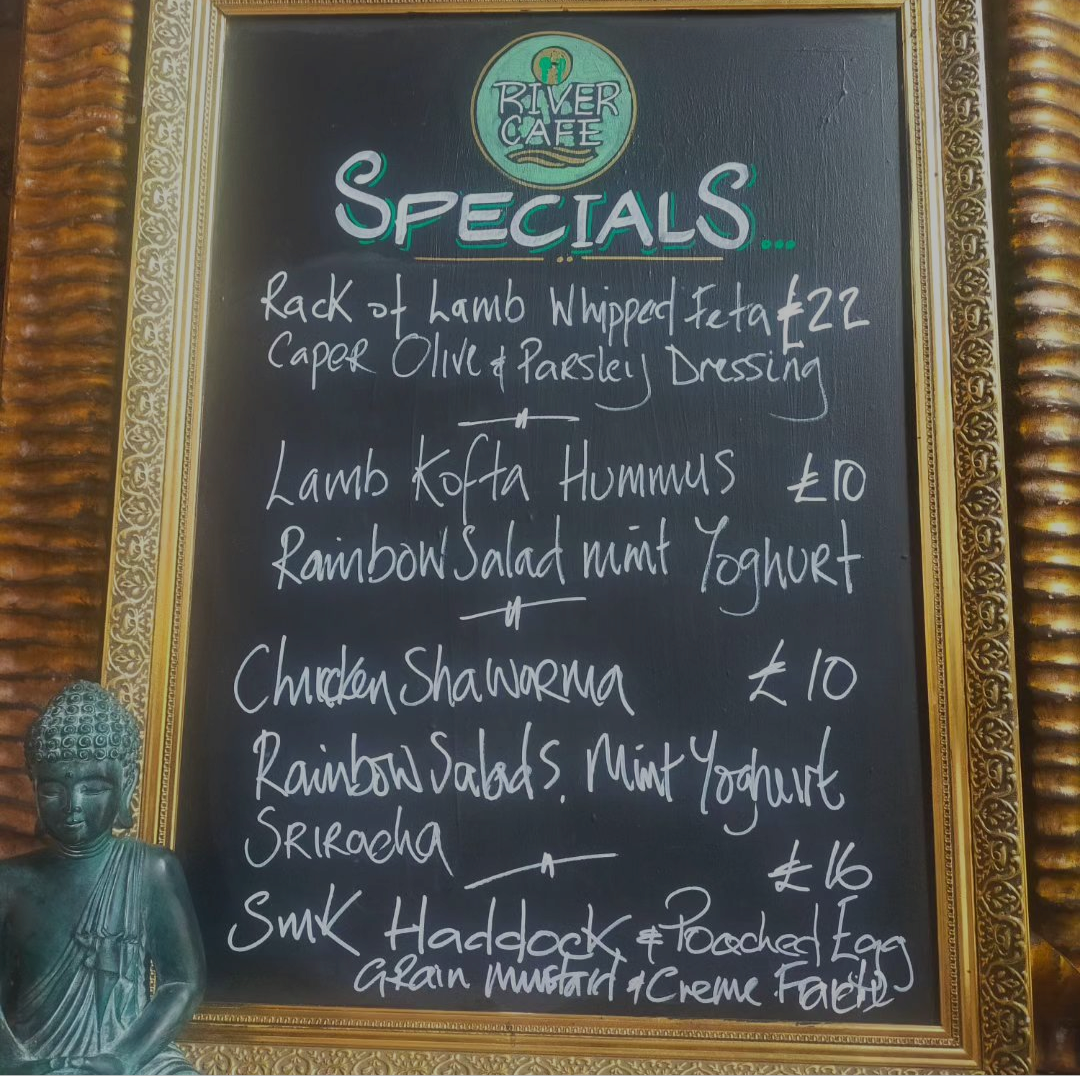 RIVER
CAFE
SPECIALS...
Rack of Lamb Whipped Feta £22
Caper Olive & Parsley Dressing
Lamb Kofta Hummus £10
Rainbow Salad mint Yoghurt
Chicken Shaworma £10
Rainbow Salads. Mint Yoghurt
Sriracha
£16
Smk Haddock & Poached Egg
Grain Mustard & Creme